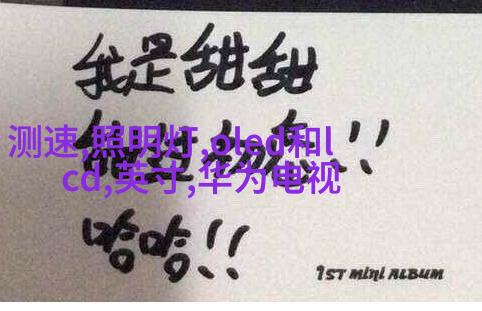 我是甜甜
测速,照明灯,oled和l
cd,英寸,华为电视
!!
哈哈!!
1ST MINI ALBUM